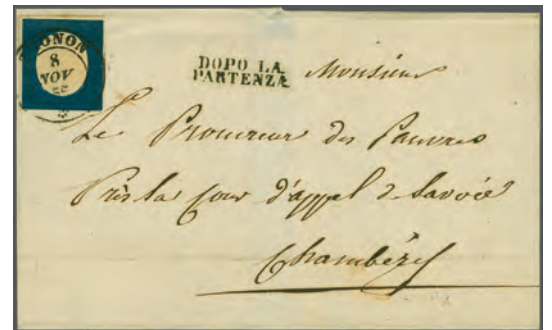 ONON
8
NOV
DOPO LA
PARTENZA
Monsieur
Le Procureur des Pauvres
Près la Cour d'appel de Savoie
Chambéry